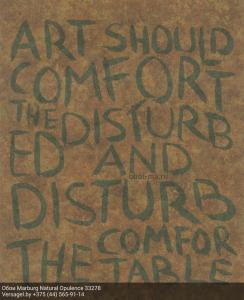 ART SHOULD
COMFORT
THE DISTURB
ED AND
DISTURB
THE COMFOR
TABLE
oboi-ma.ru
Обои Marburg Natural Opulence 33278
Versagel.by +375 (44) 565-91-14